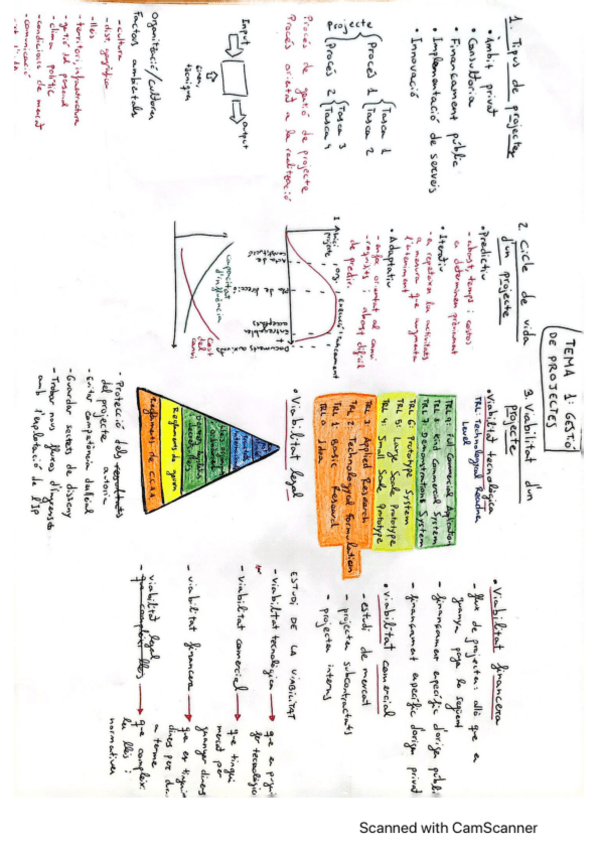 TEMA 1: GESTIÓ
DE PROJECTES
1. Tipus de projectes
• Àmbit privat
• Consultoria
• Finançament públic
• Implementació de serveis
• Innovació
projecte
Procés 1
Tasca 1
Tasca 2
Procés 2
Tasca 3
Tasca 4
Procés de gestió de projecte
Procés orientat a la realització
Input
output
eines,
tècniques
Organització/cultura
Factors ambientals
- cultura
- dist. geogràfica
- lleis
- territori, infrastructura
- gestió del personal
- clima polític
- condicions de mercat
- comunicació
2. Cicle de vida
d'un projecte
• Predictiu
- abast, temps i costos
es determinen prèviament
• Iteratiu
- es repeteixen les activitats
a mesura que augmenta
l'enteniment
• Adaptatiu
- enfoc orientat al canvi
- requisits i abast difícil
de predir.
capacitat
d'influència
Cost
del
canvi
3. Viabilitat d'un
projecte
• Viabilitat tecnològica
TRL: Technological Readiness
Level
TRL 9: Full Commercial Aplication
TRL 8: End Commercial System
TRL 7: Demonstrations System
TRL 6: Prototype System
TRL 5: Large Scale Prototype
TRL 4: Small Scale Prototype
TRL 3: Applied Research
TRL 2: Technological Formulation
TRL 1: Basic Research
TRL 0: Idea
• Viabilitat legal
Reglaments de govern
Reglaments de CCAA
- Protecció dels resultats
del projecte, autoria
- Evitar competència deslleial
- Guardar secrets de disseny
- Trobar nous fluxos d'ingressos
amb l'explotació de l'IP
• Viabilitat financera
- flux de projectes: allò que es
guanya paga lo següent
- finançament específic d'origen públic
- finançament específic d'origen privat
• Viabilitat comercial
- estudi de mercat
- projectes subcontractats
- projectes interns
ESTUDI DE LA VIABILITAT
- viabilitat tecnològica
- viabilitat comercial
que tingui
mercat per
guanyar diners
- viabilitat financera
que es tingui
diners per
a terme
- viabilitat legal
que compleixi
les lleis i
normatives
Scanned with CamScanner